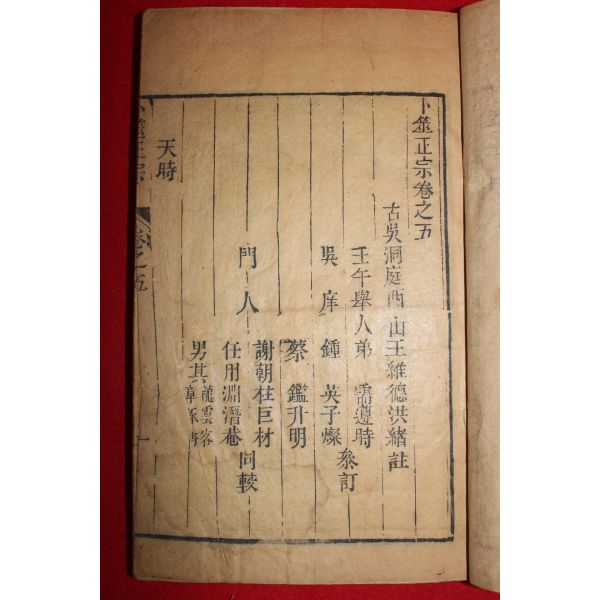 卜筮正宗卷之五
古吳洞庭西山王維德洪緒註
壬午舉人弟 需遵時
吳庠 鍾英子燦
參訂
蔡鑑升明
門人 謝朝柱巨材
任用淵潛菴
同較
男其龍雲客
章
天時
卜筮正宗 卷之五 一